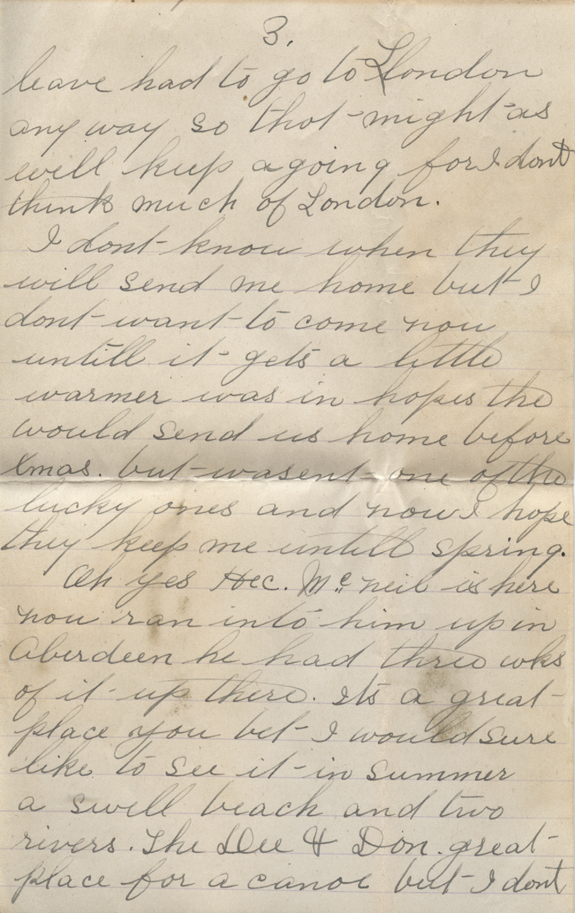 3.
leave had to go to London
any way so that might as
will keep agoing for I dont
think much of London.
I dont know when they
will send me home but I
dont want to come now
untill it gets a little
warmer was in hopes the
would send us home before
Xmas. but wasent one of the
lucky ones and now I hope
they keep me untill spring.
Oh yes Hec. Mc neil is here
now ran into him up in
Aberdeen he had three wks
of it up there. Its a great
place you bet I would sure
like to see it in summer
a swell beach and two
rivers. The Dee & Don. great
place for a canoe but I dont